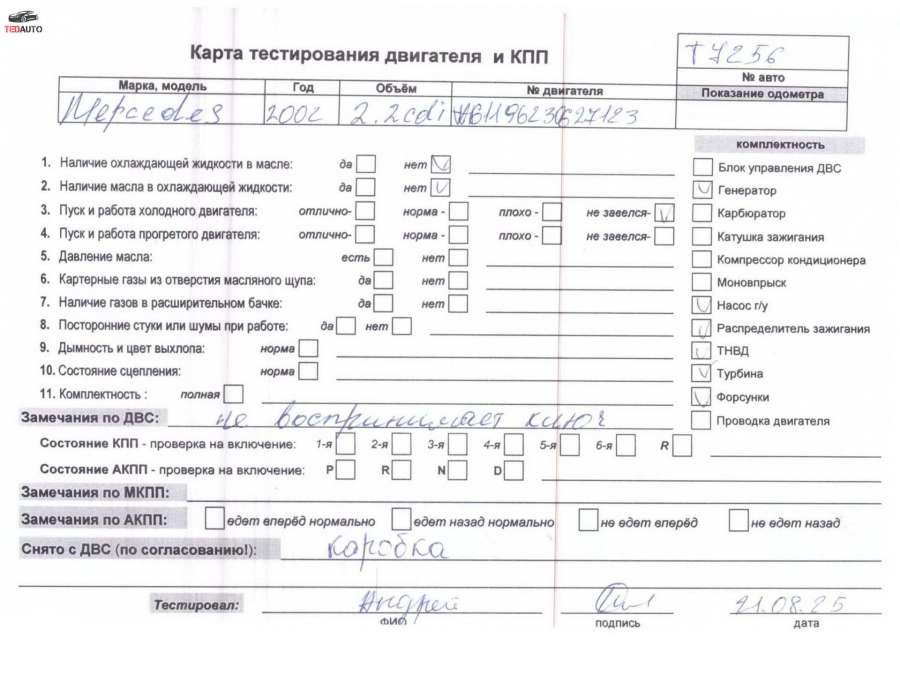 TEDAUTO
Карта тестирования двигателя и КПП
T7256
№ авто
Марка, модель Год Объём № двигателя Показание одометра
Mercedes 2002 2.2cdi
комплектность
1. Наличие охлаждающей жидкости в масле: да нет
Блок управления ДВС
2. Наличие масла в охлаждающей жидкости: да нет
Генератор
3. Пуск и работа холодного двигателя: отлично- норма - плохо - не завелся-
Карбюратор
4. Пуск и работа прогретого двигателя: отлично- норма - плохо - не завелся-
Катушка зажигания
5. Давление масла: есть нет
Компрессор кондиционера
6. Картерные газы из отверстия масляного щупа: да нет
Моновпрыск
7. Наличие газов в расширительном бачке: да нет
Насос г/у
8. Посторонние стуки или шумы при работе: да нет
Распределитель зажигания
9. Дымность и цвет выхлопа: норма
ТНВД
10. Состояние сцепления: норма
Турбина
11. Комплектность : полная
Форсунки
Замечания по ДВС: не воспринимает ключ
Проводка двигателя
Состояние КПП - проверка на включение: 1-я 2-я 3-я 4-я 5-я 6-я R
Состояние АКПП - проверка на включение: P R N D
Замечания по МКПП:
Замечания по АКПП: едет вперёд нормально едет назад нормально не едет вперёд не едет назад
Снято с ДВС (по согласованию!): коробка
Тестировал: Андрей 21.08.25
ФИО подпись дата